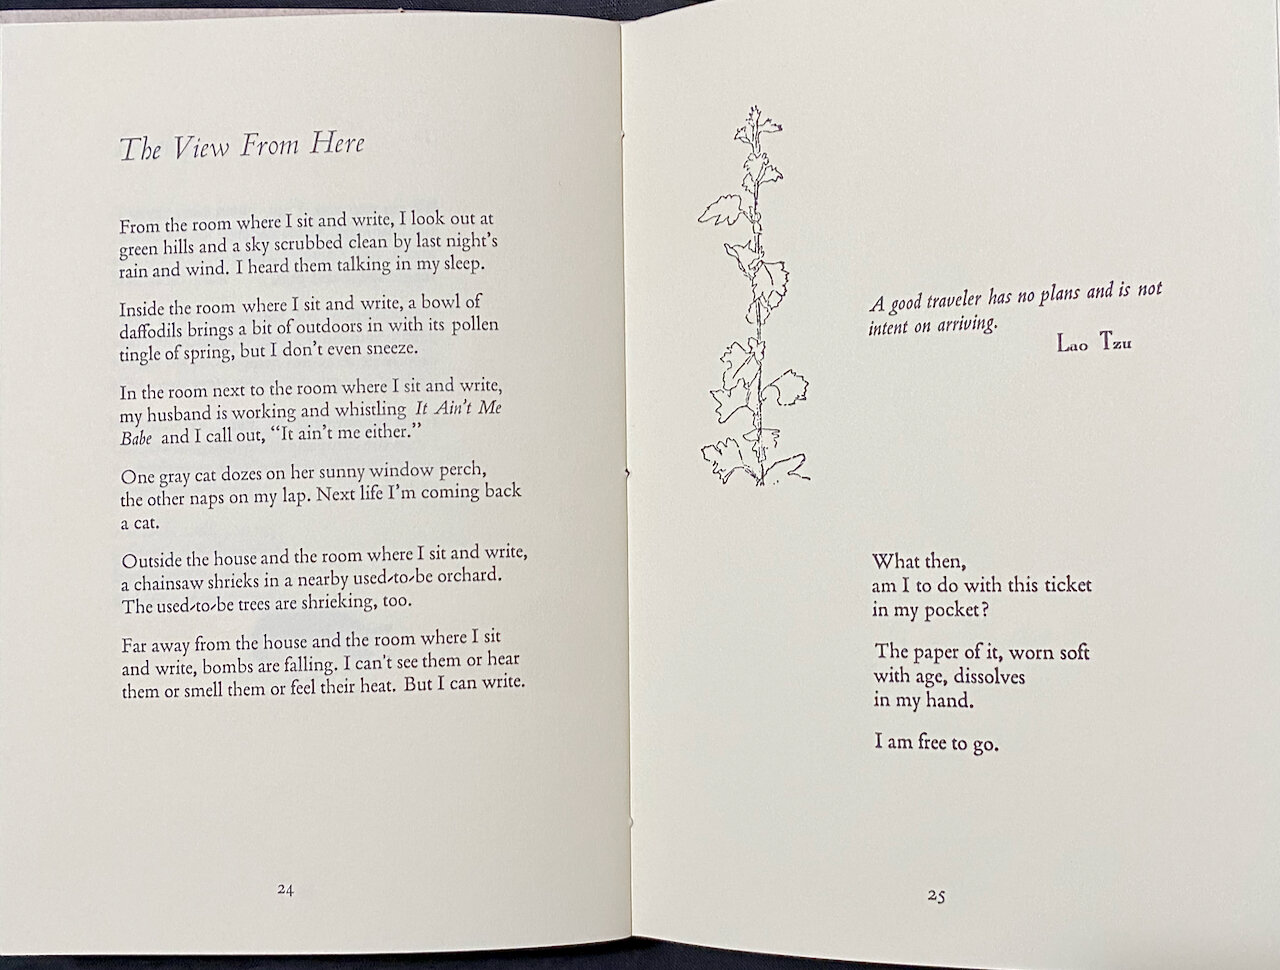 The View From Here
From the room where I sit and write, I look out at
green hills and a sky scrubbed clean by last night's
rain and wind. I heard them talking in my sleep.
Inside the room where I sit and write, a bowl of
daffodils brings a bit of outdoors in with its pollen
tingle of spring, but I don't even sneeze.
In the room next to the room where I sit and write,
my husband is working and whistling It Ain't Me
Babe and I call out, “It ain't me either.”
One gray cat dozes on her sunny window perch,
the other naps on my lap. Next life I'm coming back
a cat.
Outside the house and the room where I sit and write,
a chainsaw shrieks in a nearby used-to-be orchard.
The used-to-be trees are shrieking, too.
Far away from the house and the room where I sit
and write, bombs are falling. I can't see them or hear
them or smell them or feel their heat. But I can write.
24
A good traveler has no plans and is not
intent on arriving.
Lao Tzu
What then,
am I to do with this ticket
in my pocket?
The paper of it, worn soft
with age, dissolves
in my hand.
I am free to go.
25